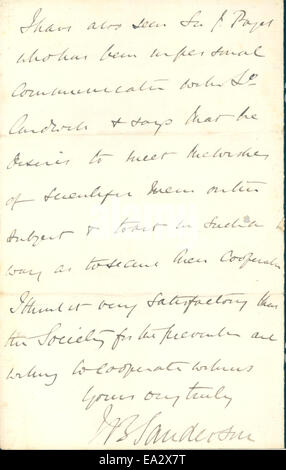 I have also seen Sir J. Paget
who has been in personal
communication with Ld
Cardwell & says that he
desires to meet the wishes
of scientific men on this
subject & to act in such a
way as to secure their cooperation
I think it very satisfactory that
the Society for the prevention are
willing to cooperate with us
Yours very truly
J B Sanderson
alamy stock photo
EA2X7T
www.alamy.com